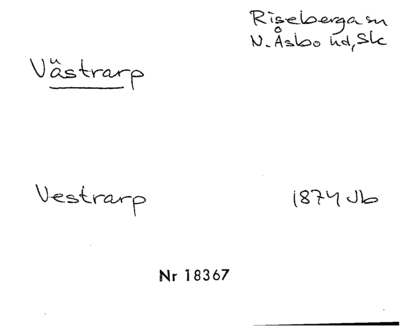 Riseberga sn
N. Åsbo hd, Sk
Västrarp
Vestrarp 1874 Jb
Nr 18367